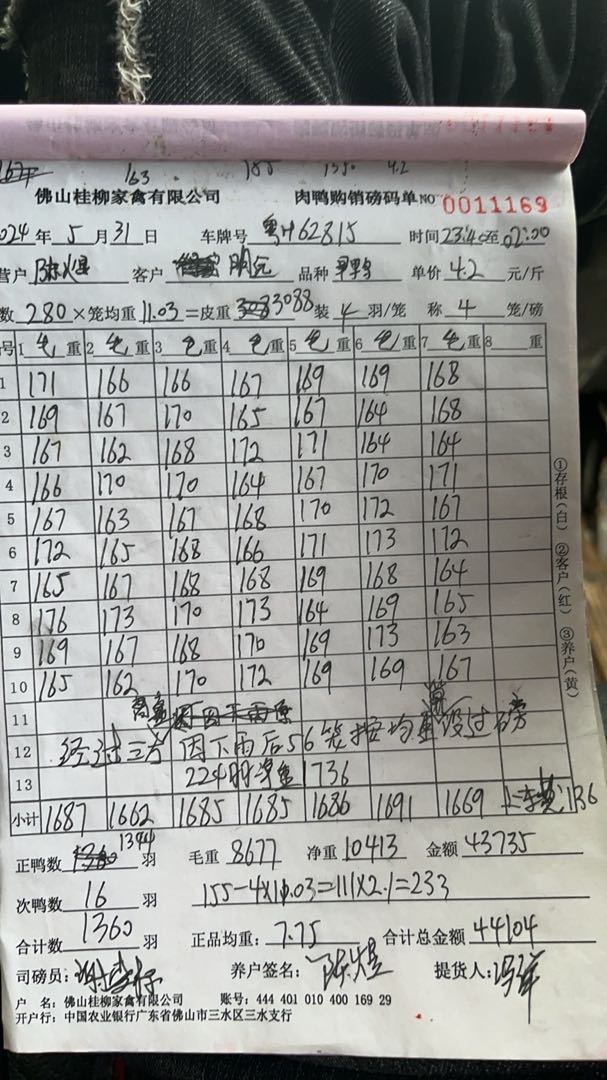 163 185 1350 4.2
佛山桂柳家禽有限公司 肉鸭购销磅码单 NO 0011169
2024 年 5 月 31 日 车牌号 粤H62815 时间 23:40至02:00
营户 陈煜 客户 明记 品种 单价 4.2 元/斤
数 280 ×笼均重 11.03 =皮重 3088 装 4 羽/笼 称 4 笼/磅
号 1 毛 重 2 毛 重 3 毛 重 4 毛 重 5 毛 重 6 毛 重 7 毛 重 8 重
1 171 166 166 167 169 169 168
2 169 167 170 165 167 164 168
3 167 162 168 172 171 164 164
4 166 170 170 164 167 170 171
5 167 163 167 168 170 172 167
6 172 165 168 166 171 173 172
7 165 167 168 168 169 168 164
8 176 173 170 173 164 169 165
9 169 167 168 170 169 173 163
10 165 162 170 172 169 169 167
11
12 经过三方 因下雨后56笼按均重没过磅
13 224羽净重1736
小计 1687 1662 1685 1685 1686 1691 1669
正鸭数 1344 羽 毛重 8677 净重 10413 金额 43735
次鸭数 16 羽 155-4×11.03=111×2.1=233
合计数 1360 羽 正品均重: 7.75 合计总金额 44104
司磅员: 养户签名: 陈煜 提货人:
户 名: 佛山桂柳家禽有限公司 账号: 444 401 010 400 169 29
开户行: 中国农业银行广东省佛山市三水区三水支行
①存根(白) ②客户(红) ③养户(黄)